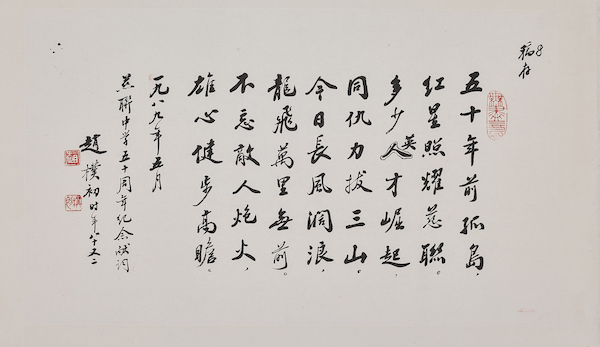 稿存
五十年前孤島，
红星照耀慈聯。
英
多少人才崛起，
同仇力拔三山。
今日長風濶浪，
龍飛萬里無前。
不忘敵人炮火，
雄心健步高瞻。
一九八九年五月
慈聯中学五十周年纪念献词
趙樸初时年八十又二